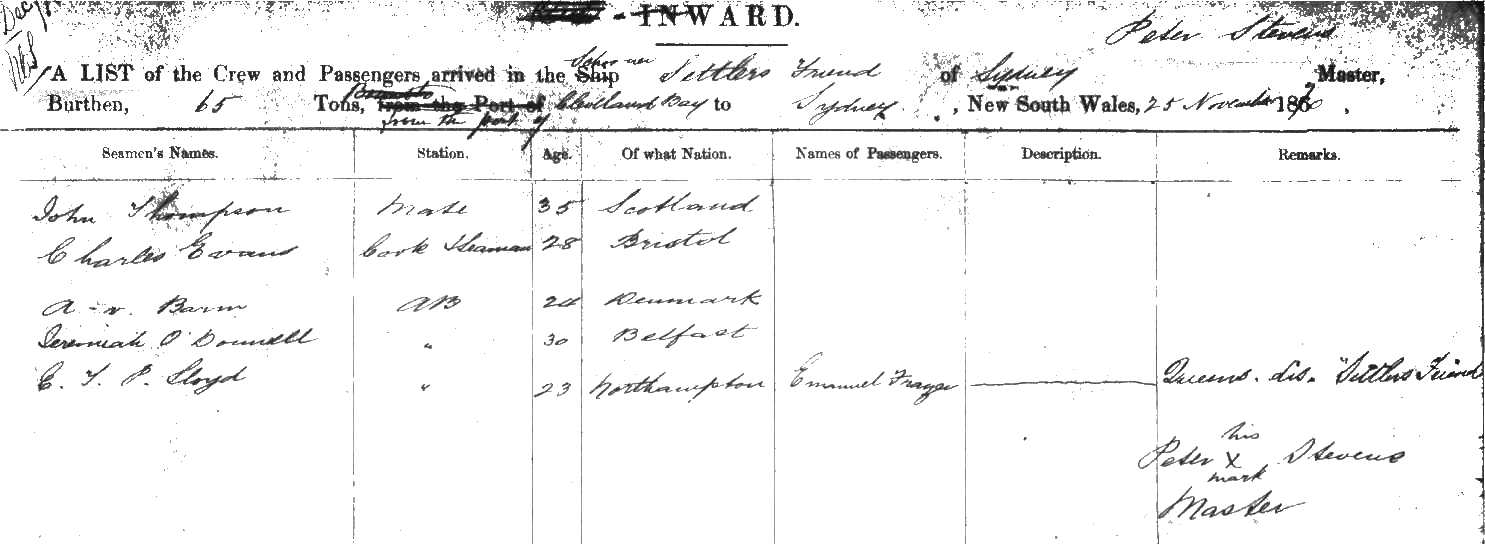 Dec
INWARD.
Peter Stevens
Schooner
A LIST of the Crew and Passengers arrived in the Ship Settlers Friend of Sydney Master,
Burthen, 65 Tons, from the Port of Cleveland Bay to Sydney, New South Wales, 25 November 1870,
from the port of
Seamen's Names. Station. Age. Of what Nation. Names of Passengers. Description. Remarks.
John Thompson Mate 35 Scotland
Charles Evans Cook & Seaman 28 Bristol
A - v. Barm AB 24 Denmark
Jeremiah O'Donnell " 30 Belfast
E. T. P. Lloyd " 23 Northampton Emanuel Queens. dis. "Settlers Friend
his
Peter X Stevens
mark
Master